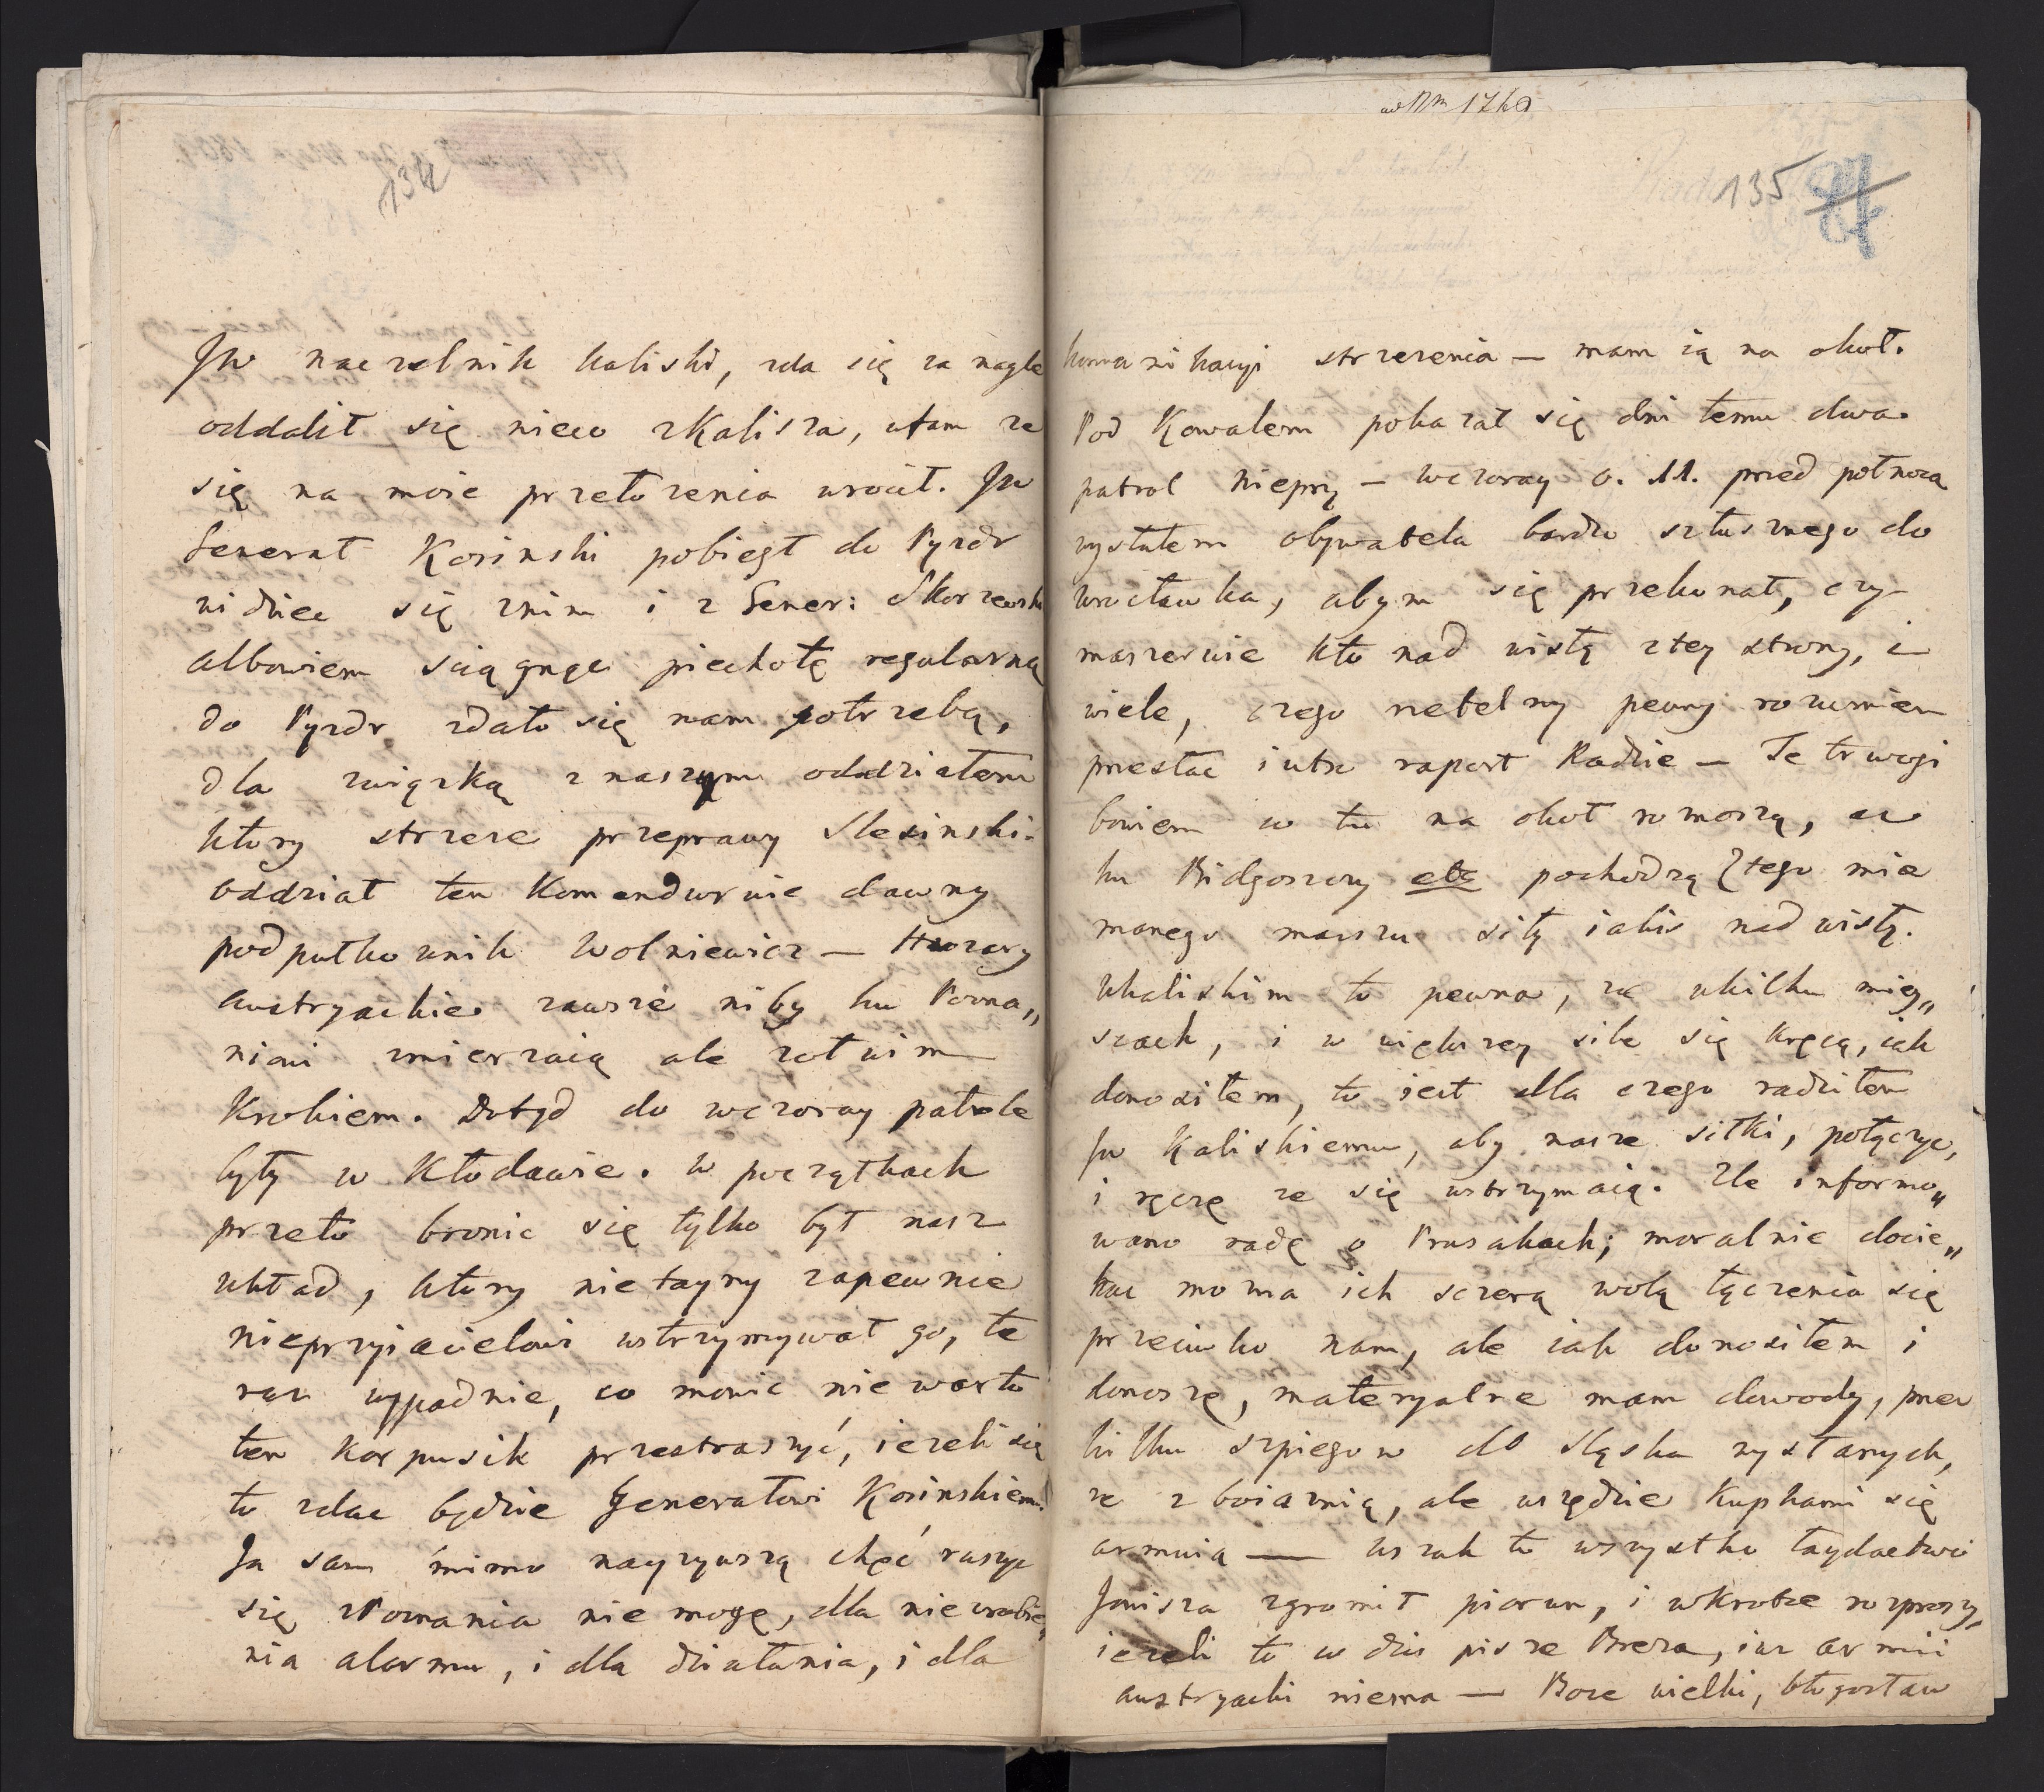 134
JW naczelnik kaliski, zda się za nagle
oddalił się nieco z Kalisza, ufam ze
się na moie przełozenia wrócił. JW
Generał Kosinski pobiegł do Pyzdr
widziec się znim i z Gener: Skorzewski
albowiem sciągnąc piechotę regularną
do Pyzdr zdało się nam potrzebą,
dla związką z naszym oddziałem
ktory strzeze przeprawy Slesinski.
oddział ten Komenderuie dawny
podpułkownik Wolniewicz — Huzary
Austryackie zawsze niby ku Pozna„
niowi zmierzaią ale żołwim
Krokiem. Dotyd do wczoray patrole
były w Kłodawie. W początkach
przeto bronic się tylko był nasz
układ, ktory nietayny zapewnie
nieprzyiacielowi wstrzymywał go, te
raz wypadnie, co mowic nie warto
ten korpusik przestraszyć, iezeli się
to zdac będzie Generałowi Kosinskiemu.
Ja sam mimo nayzywszą chęć ruszyc
się z Poznania nie mogę, dla nie zrobie„
nia alarmu, i dla działania, i dla
ad Nm 1760
135
komunikacyi strzezenia — mam ią na okoł.
Pod Kowalem pokazał się dni temu dwa
patrol nieprzy — wczoray o. 11. przed połnocą
wysłałem obywatela bardzo sztusznego do
Wrocławka, abym się przekonał, czy
maszeruie kto nad wisłą z tey strony, i
wiele, czego rzetelny pewny rozumiem
przesłac iutro raport Radzie — Te trwogi
bowiem co tu na okoł roznoszą, az
ku Bidgoszczy etc pochodzą z tego mie
manego marszu siły iakis nad wisłą.
Wkaliskim to pewna, ze wkilku miey„
scach, i w większey sile się kręcą, iak
donosiłem, to iest dla czego radziłem
JW Kaliskiemu, aby nasze siłki, połączyc,
i ręczę ze się wstrzymaią. Zle informo„
wano radę o Prusakach; moralnie docie„
kac mozna ich szczerą wolą łączenia się
przeciwko nam, ale iak donosiłem i
donoszę, materyalne mam dowody, przez
kilku szpiegow do Sląska wysłanych,
ze z boiaznią, ale wszędzie kupkami się
armuią — Wszak to wszystko łaydactwo
Jowisza zgromił piorun, i wkrotce rozproszy,
iezeli to w dzis pisze Breza, iuz armii
austryacki niema — Boze wielki, błogosław